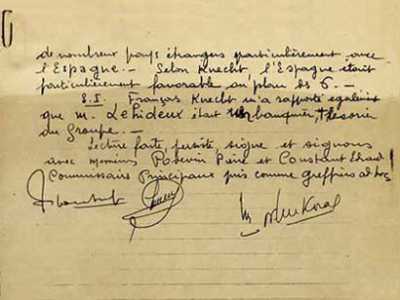 de nombreux pays étrangers particulièrement avec
l'Espagne. - Selon Knecht, l'Espagne était
particulièrement favorable au plan des S. -
S.I. François Knecht m'a rapporté également
que M. Lehideux était banquier, trésorier
du Groupe. -
Lecture faite, persiste, signe et signons
avec messieurs Potevin Pierre et Constant
Commissaires Principaux pris comme greffiers ad hoc